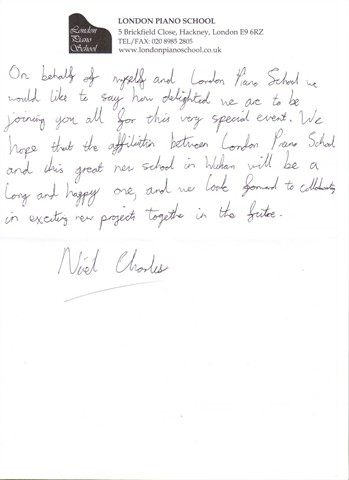 London
Piano
School
LONDON PIANO SCHOOL
5 Brickfield Close, Hackney, London E9 6RZ
TEL/FAX: 020 8985 2805
www.londonpianoschool.co.uk
On behalf of myself and London Piano School we
would like to say how delighted we are to be
joining you all for this very special event. We
hope that the affiliation between London Piano School
and this great new school in Wuhan will be a
long and happy one, and we look forward to collaborating
in exciting new projects together in the future.
Nöel Charles